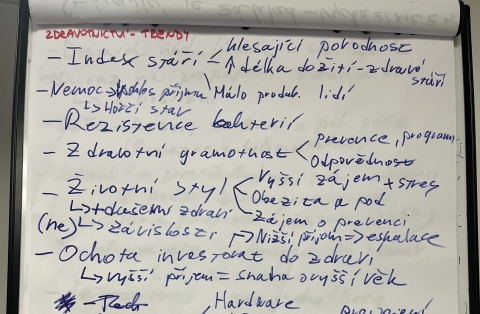 ZDRAVOTNICTVÍ - TRENDY
- Index stáří - klesající porodnost
↑ délka dožití - zdravé stáří
Málo produk. lidí
- Nemoc → příjmu
↳ Horší stav
- Rezistence bakterií
- Zdravotní gramotnost < prevence, program.
Odpovědnost
- Životní styl < Vyšší zájem + stres
Obezita a pod
Zájem o prevenci
↳ + duševní zdraví
(ne) ↳ závislosti
↱ Nižší příjem => eskalace
- Ochota investovat do zdraví
↳ vyšší příjem = snaha o vyšší věk
- Tech
Hardware